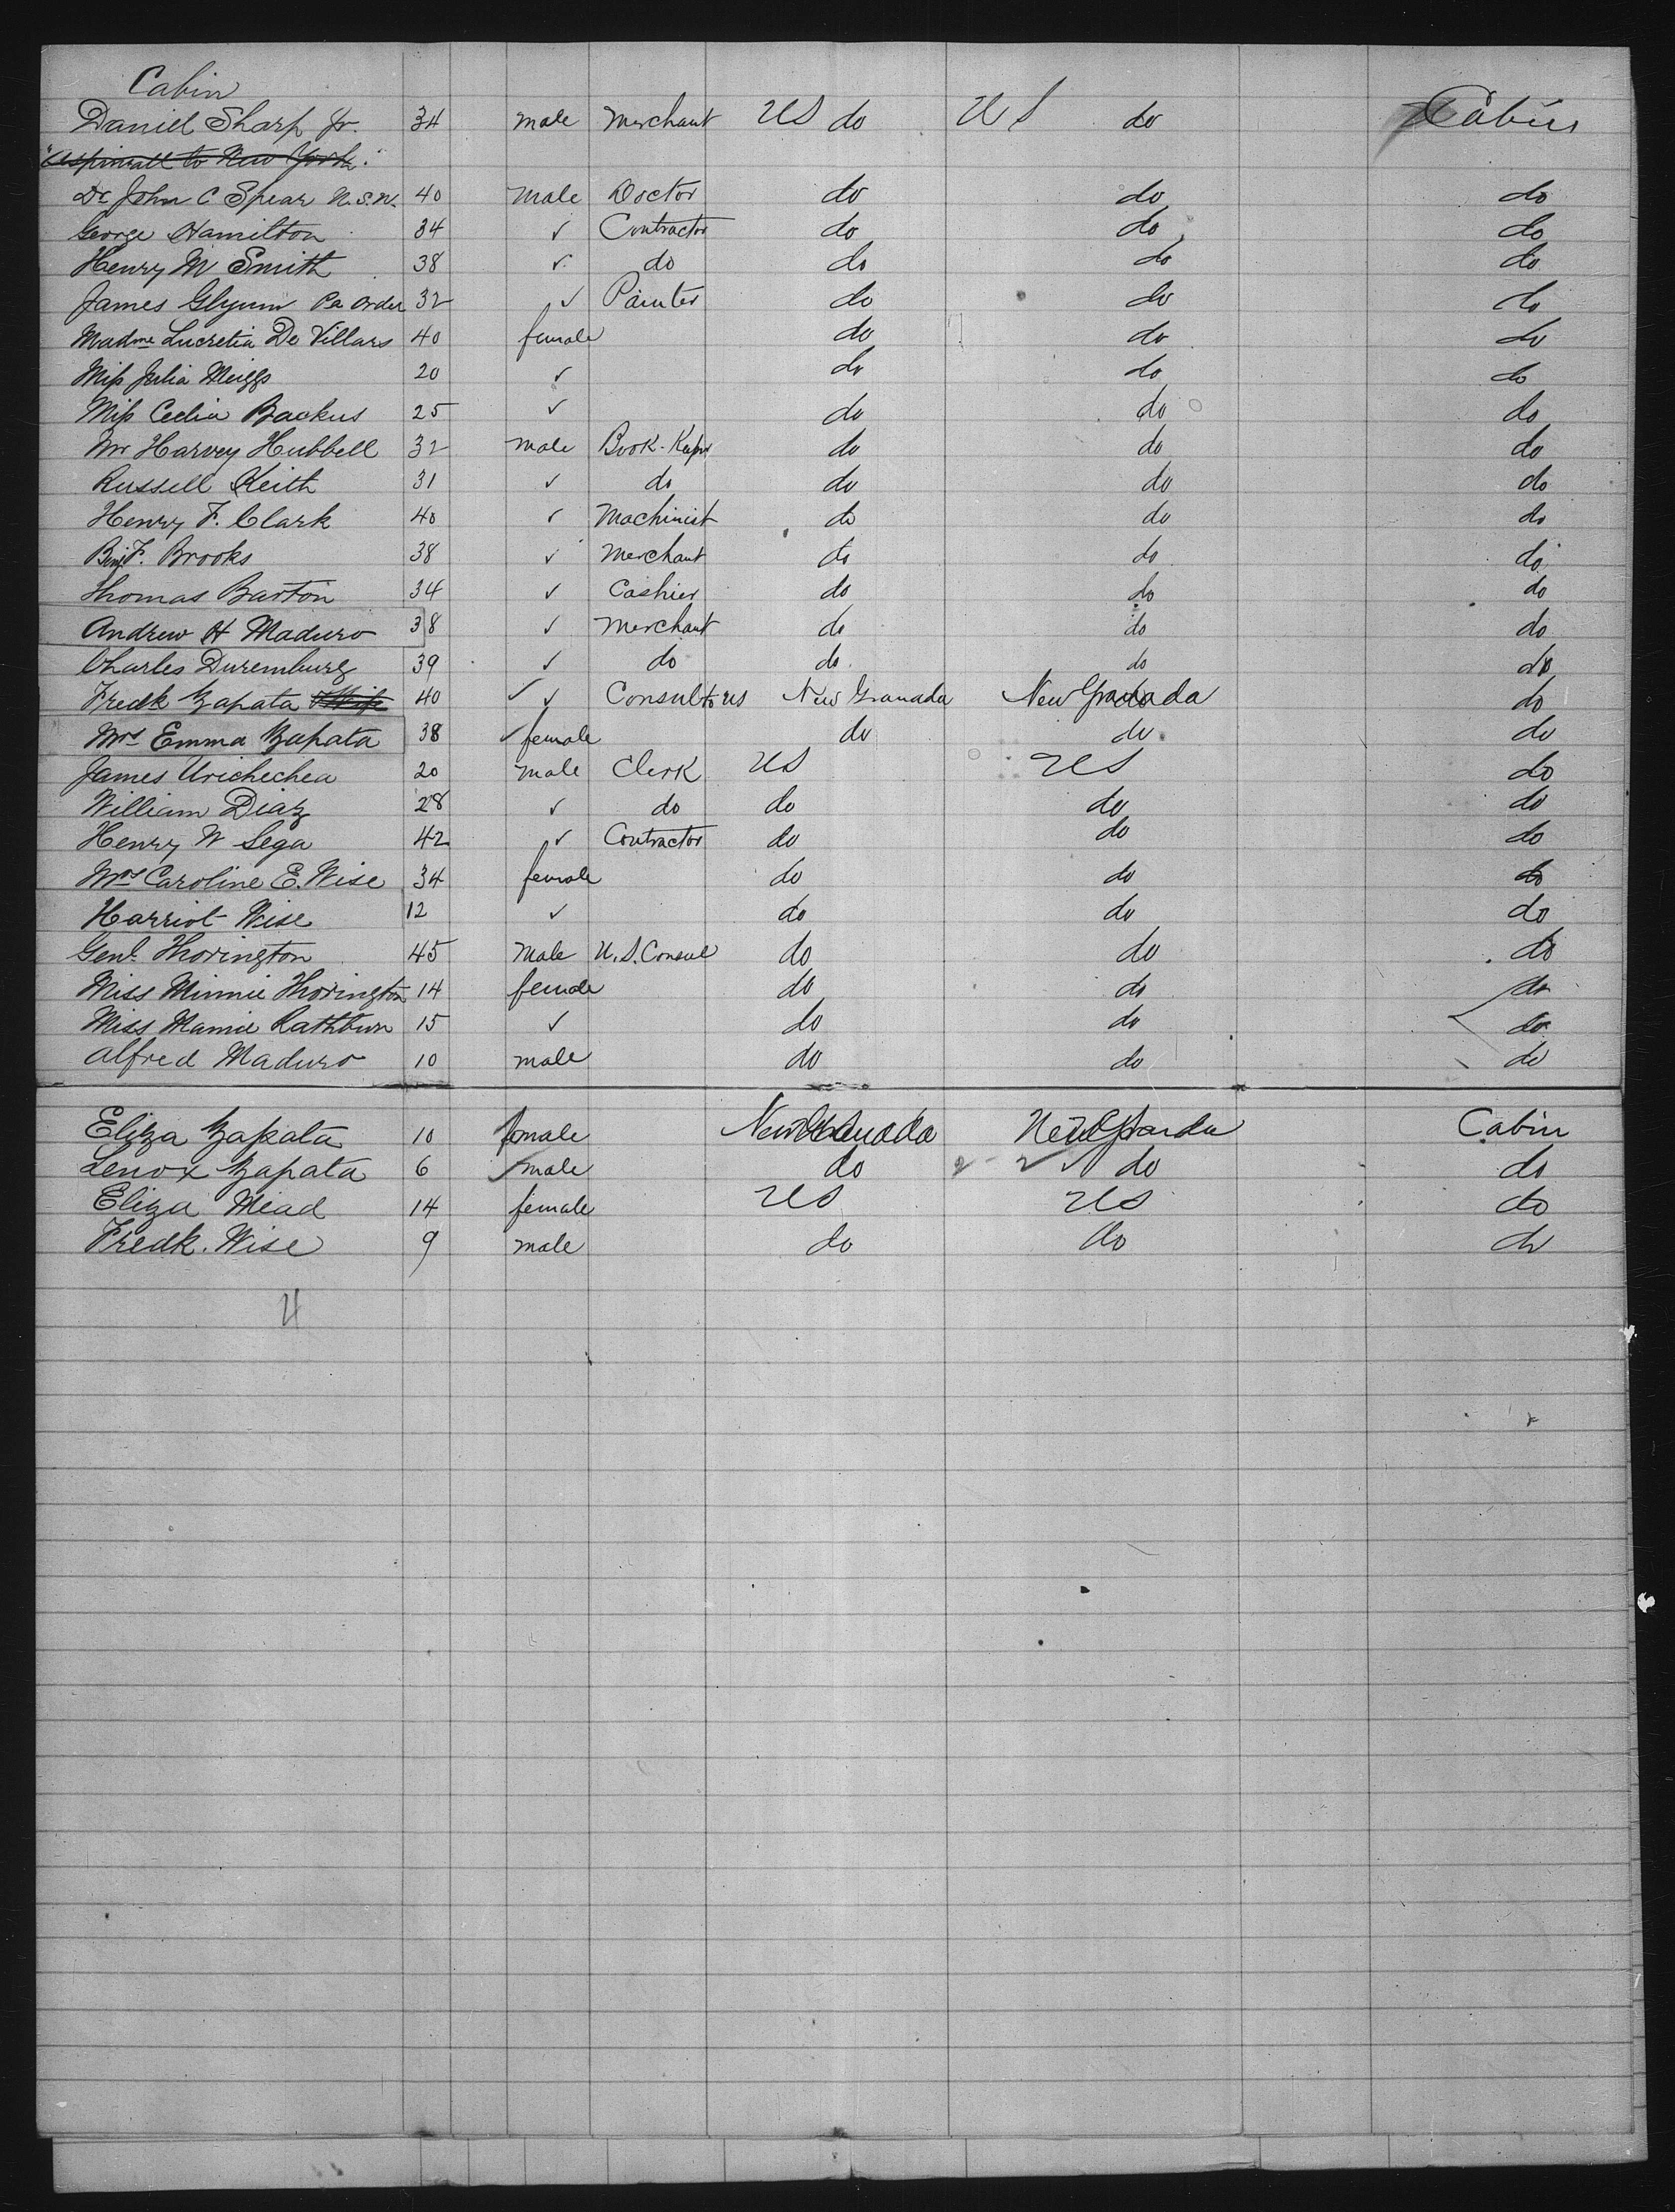 Cabin
Daniel Sharp Jr. 34 male Merchant US do US do Cabin
"Aspinwall to New York."
Dr John C Spear U.S.N. 40 male Doctor do do do
George Hamilton 34 ✓ Contractor do do do
Henry M Smith 38 ✓ do do do do
James Glynn Pa order 32 ✓ Painter do do do
Madme Lucretia De Villars 40 female do do do
Miss Julia Meiggs 20 ✓ do do do
Miss Celia Backus 25 ✓ do do do
Mr Harvey Hubbell 32 male Book-Kepr do do do
Russell Keith 31 ✓ do do do do
Henry F. Clark 40 ✓ Machinist do do do
Benj F. Brooks 38 ✓ Merchant do do do
Thomas Barton 34 ✓ Cashier do do do
Andrew H Maduro 38 ✓ Merchant do do do
Charles Duremburg 39 ✓ do do do do
Fredk Zapata & Wife 40 ✓ ✓ Consul to US New Granada New Granada do
Mrs Emma Zapata 38 ✓ female do do do
James Urichechea 20 male Clerk US US do
William Diaz 28 ✓ do do do do
Henry W Sega 42 ✓ Contractor do do do
Mrs Caroline E. Wise 34 female do do do
Harriot Wise 12 ✓ do do do
Genl. Thorington 45 Male U.S. Consul do do do
Miss Minnie Thorington 14 female do do do
Miss Mamie Rathbun 15 ✓ do do do
Alfred Maduro 10 male do do do
Eliza Zapata 10 female New Granada New Granda Cabin
Lenox Zapata 6 male do 2 - 2 ✓ do do
Eliza Mead 14 female US US do
Fredk. Wise 9 male do do do